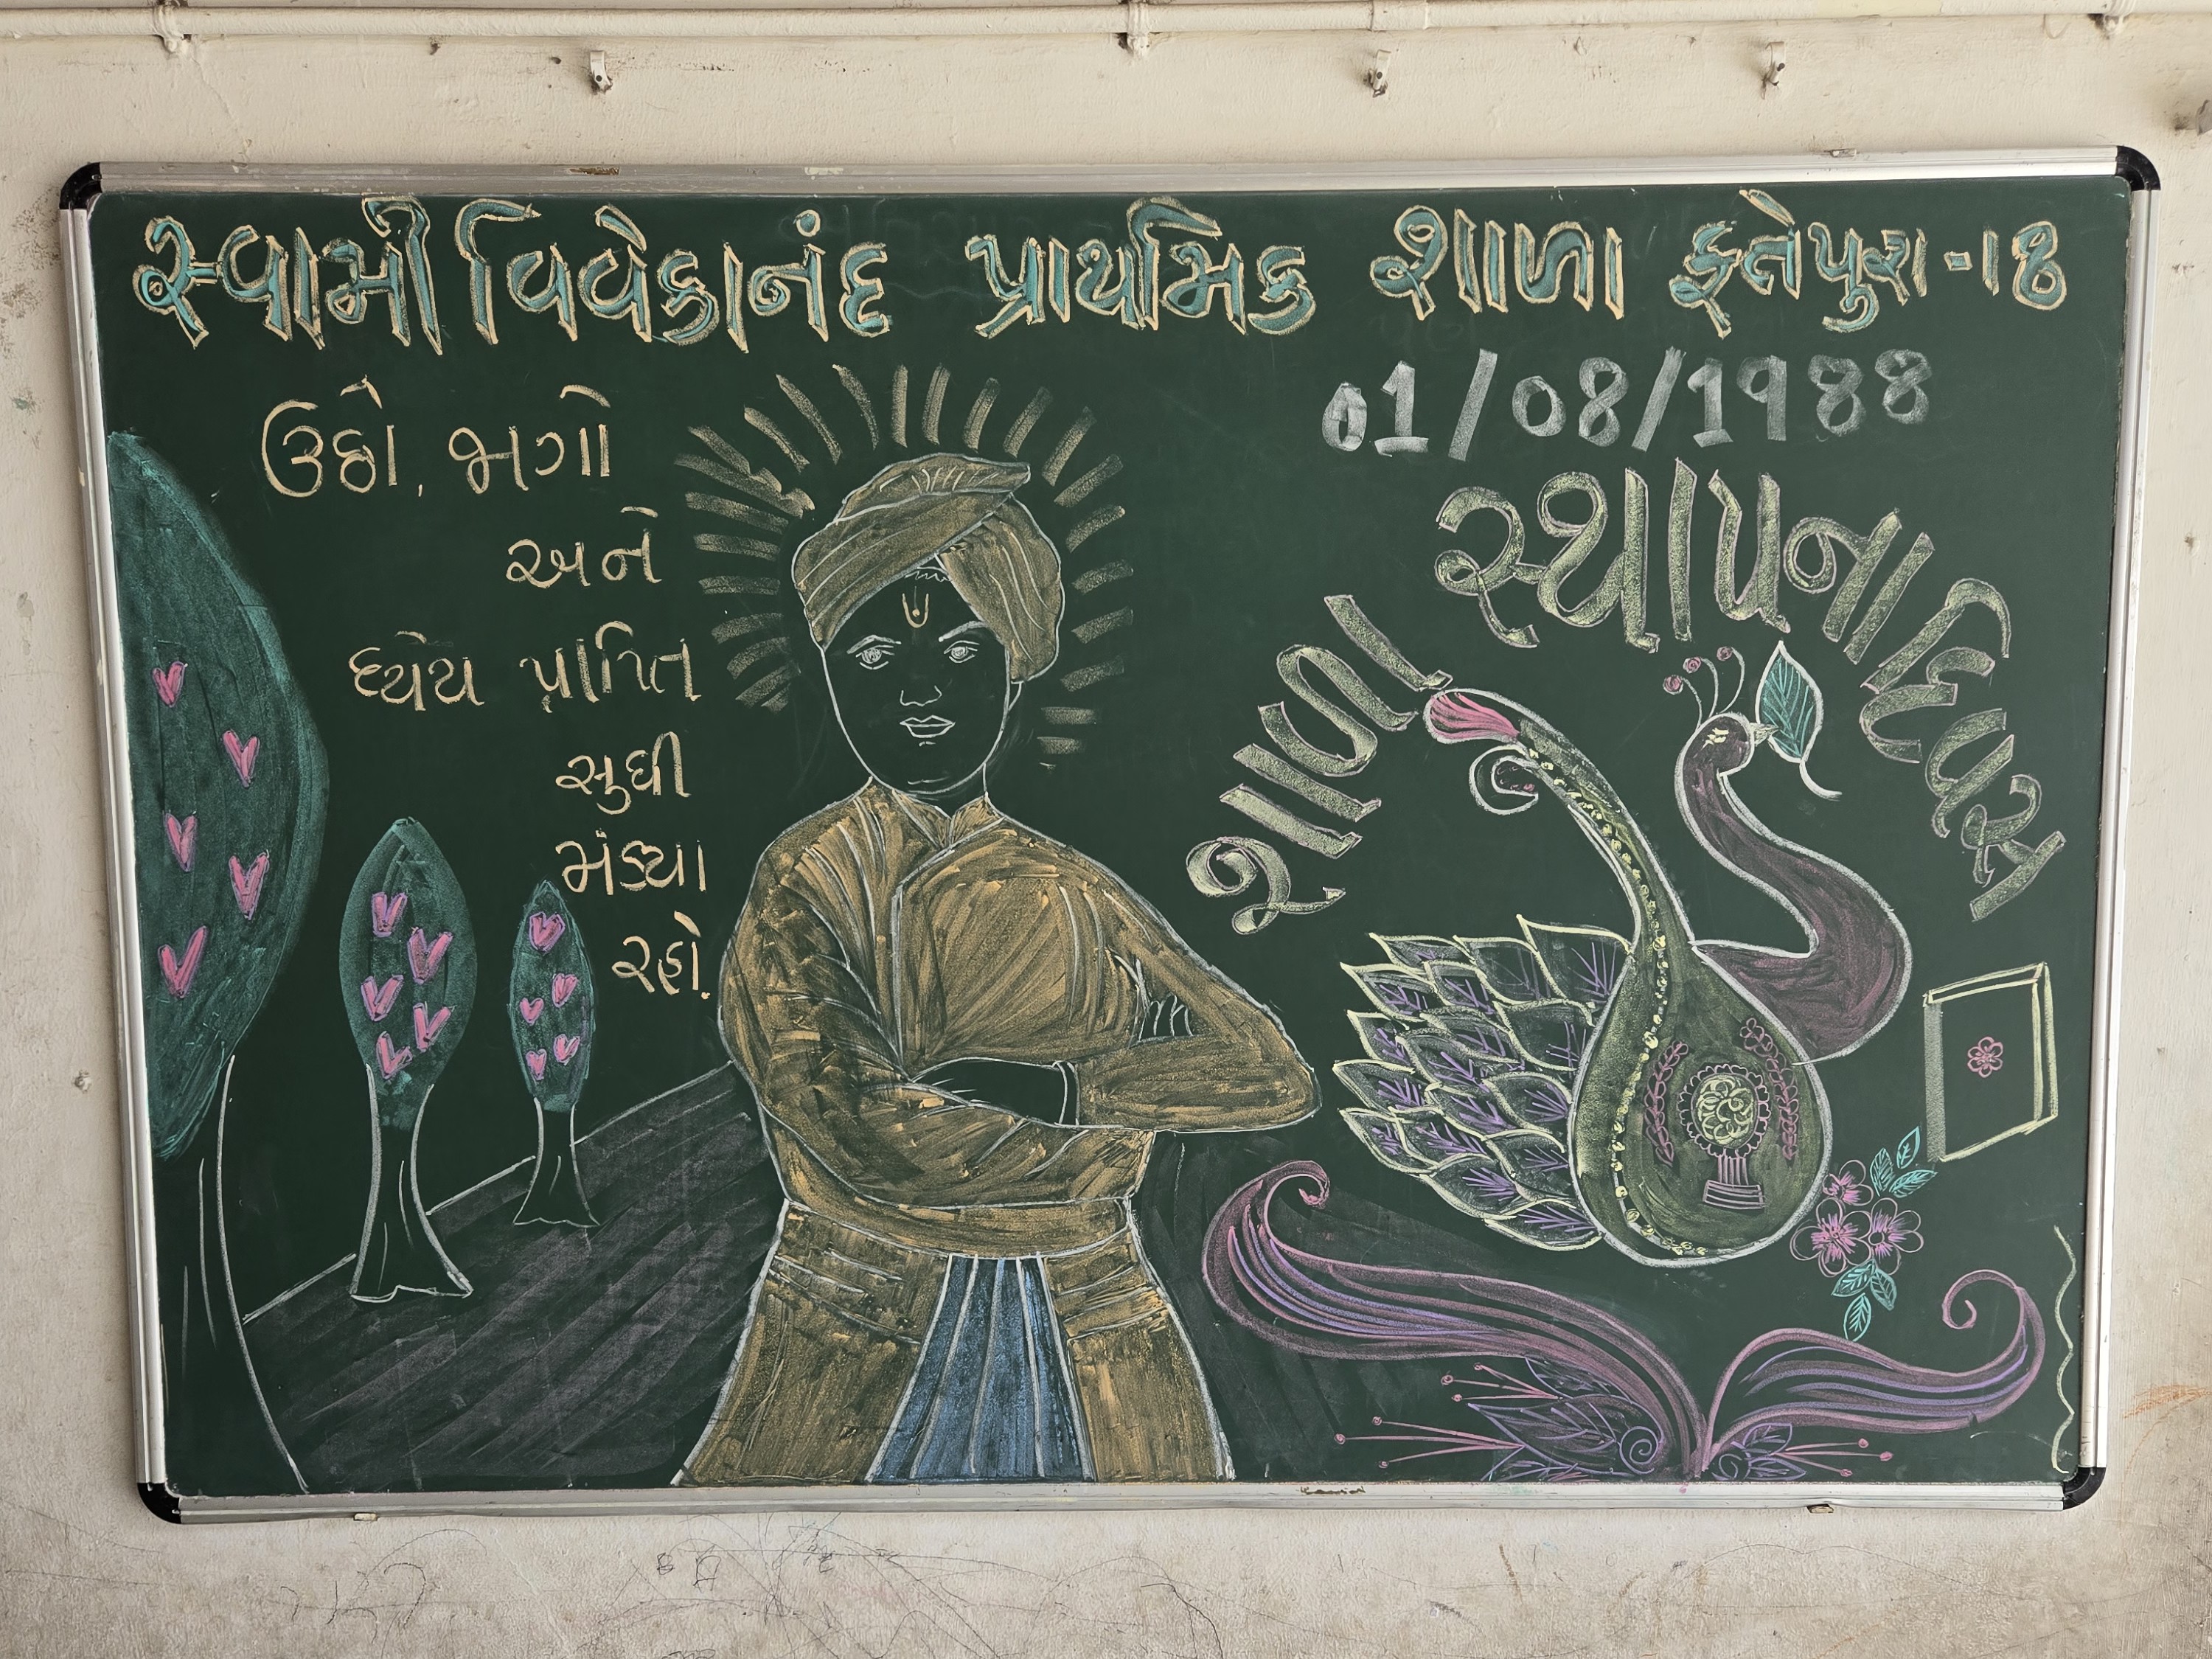 સ્વામી વિવેકાનંદ પ્રાથમિક શાળા ફતેપુરા - 18
01/08/1988
ઉઠો, જાગો
અને
ધ્યેય પ્રાપ્તિ
સુધી
મંડ્યા
રહો.
શાળા સ્થાપના દિવસ